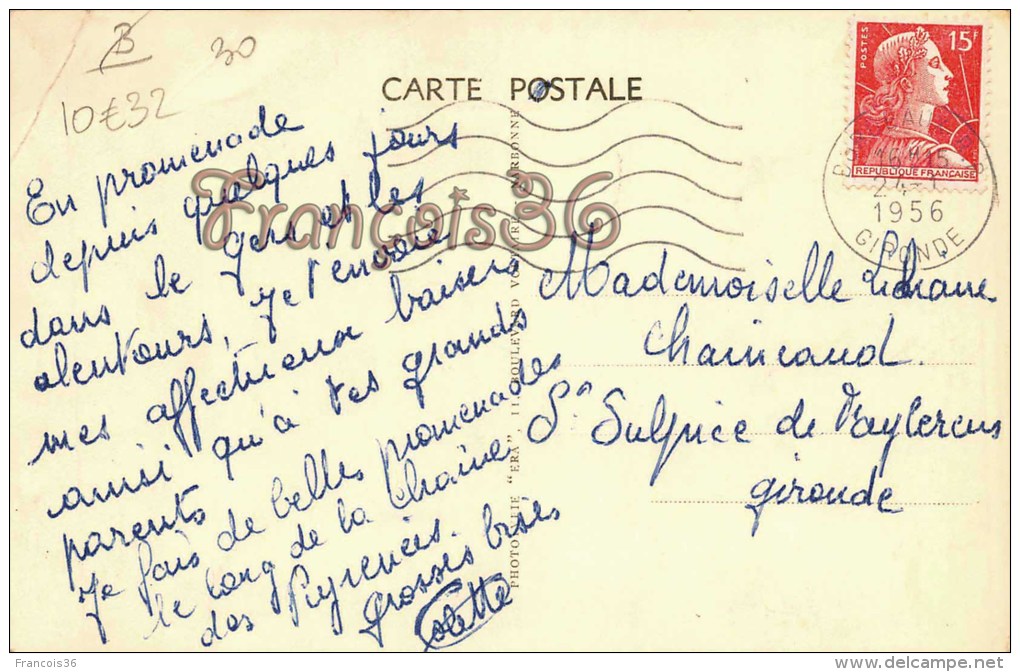 B
30
10€32
CARTE POSTALE
POSTES
15F
REPUBLIQUE FRANÇAISE
24-1
1956
GIRONDE
En promenade
depuis quelques jours
dans le Gers et les
alentours, je t'envoie
mes affectueux baisers
ainsi qu'à tes grands
parents
Je fais de belles promenades
le long de la Chaîne
des Pyrénées.
Grosses bises
Colette
Mademoiselle
St Sulpice de
Gironde
PHOTO "ERA" 11, BOULEVARD NARBONNE
François36
© Francois36
delcampe.net